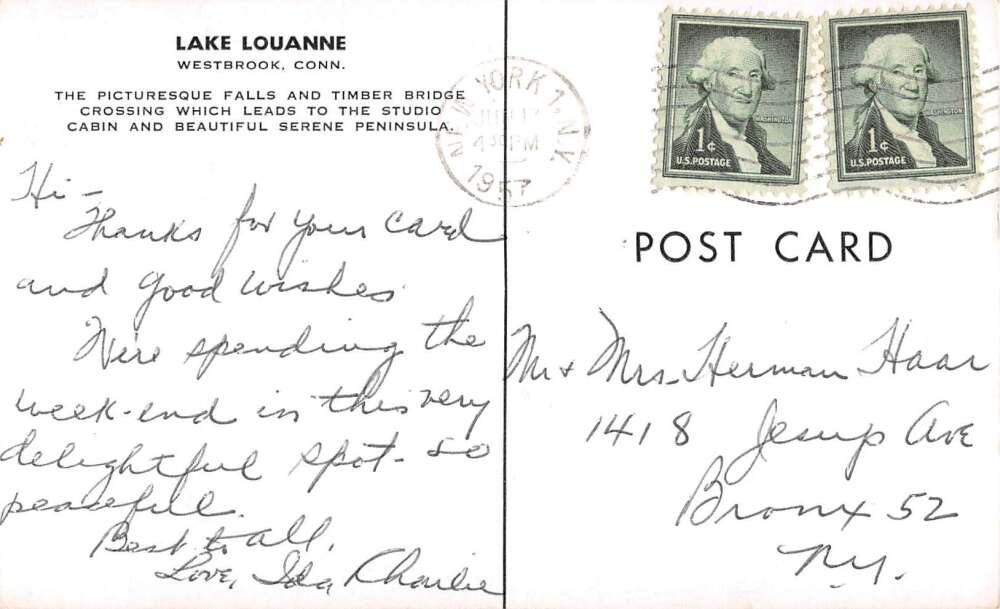 LAKE LOUANNE
WESTBROOK, CONN.
THE PICTURESQUE FALLS AND TIMBER BRIDGE
CROSSING WHICH LEADS TO THE STUDIO
CABIN AND BEAUTIFUL SERENE PENINSULA.
Hi -
Thanks for your card
and good wishes
We're spending the
week-end in this very
delightful spot - so
peaceful.
Best to all,
Love, Ida Charlie
NEW YORK 1, N.Y.
430 PM
1957
1¢
WASHINGTON
U.S. POSTAGE
1¢
WASHINGTON
U.S. POSTAGE
POST CARD
Mr & Mrs. Herman Haar
1418 Jesup Ave
Bronx 52
N.Y.